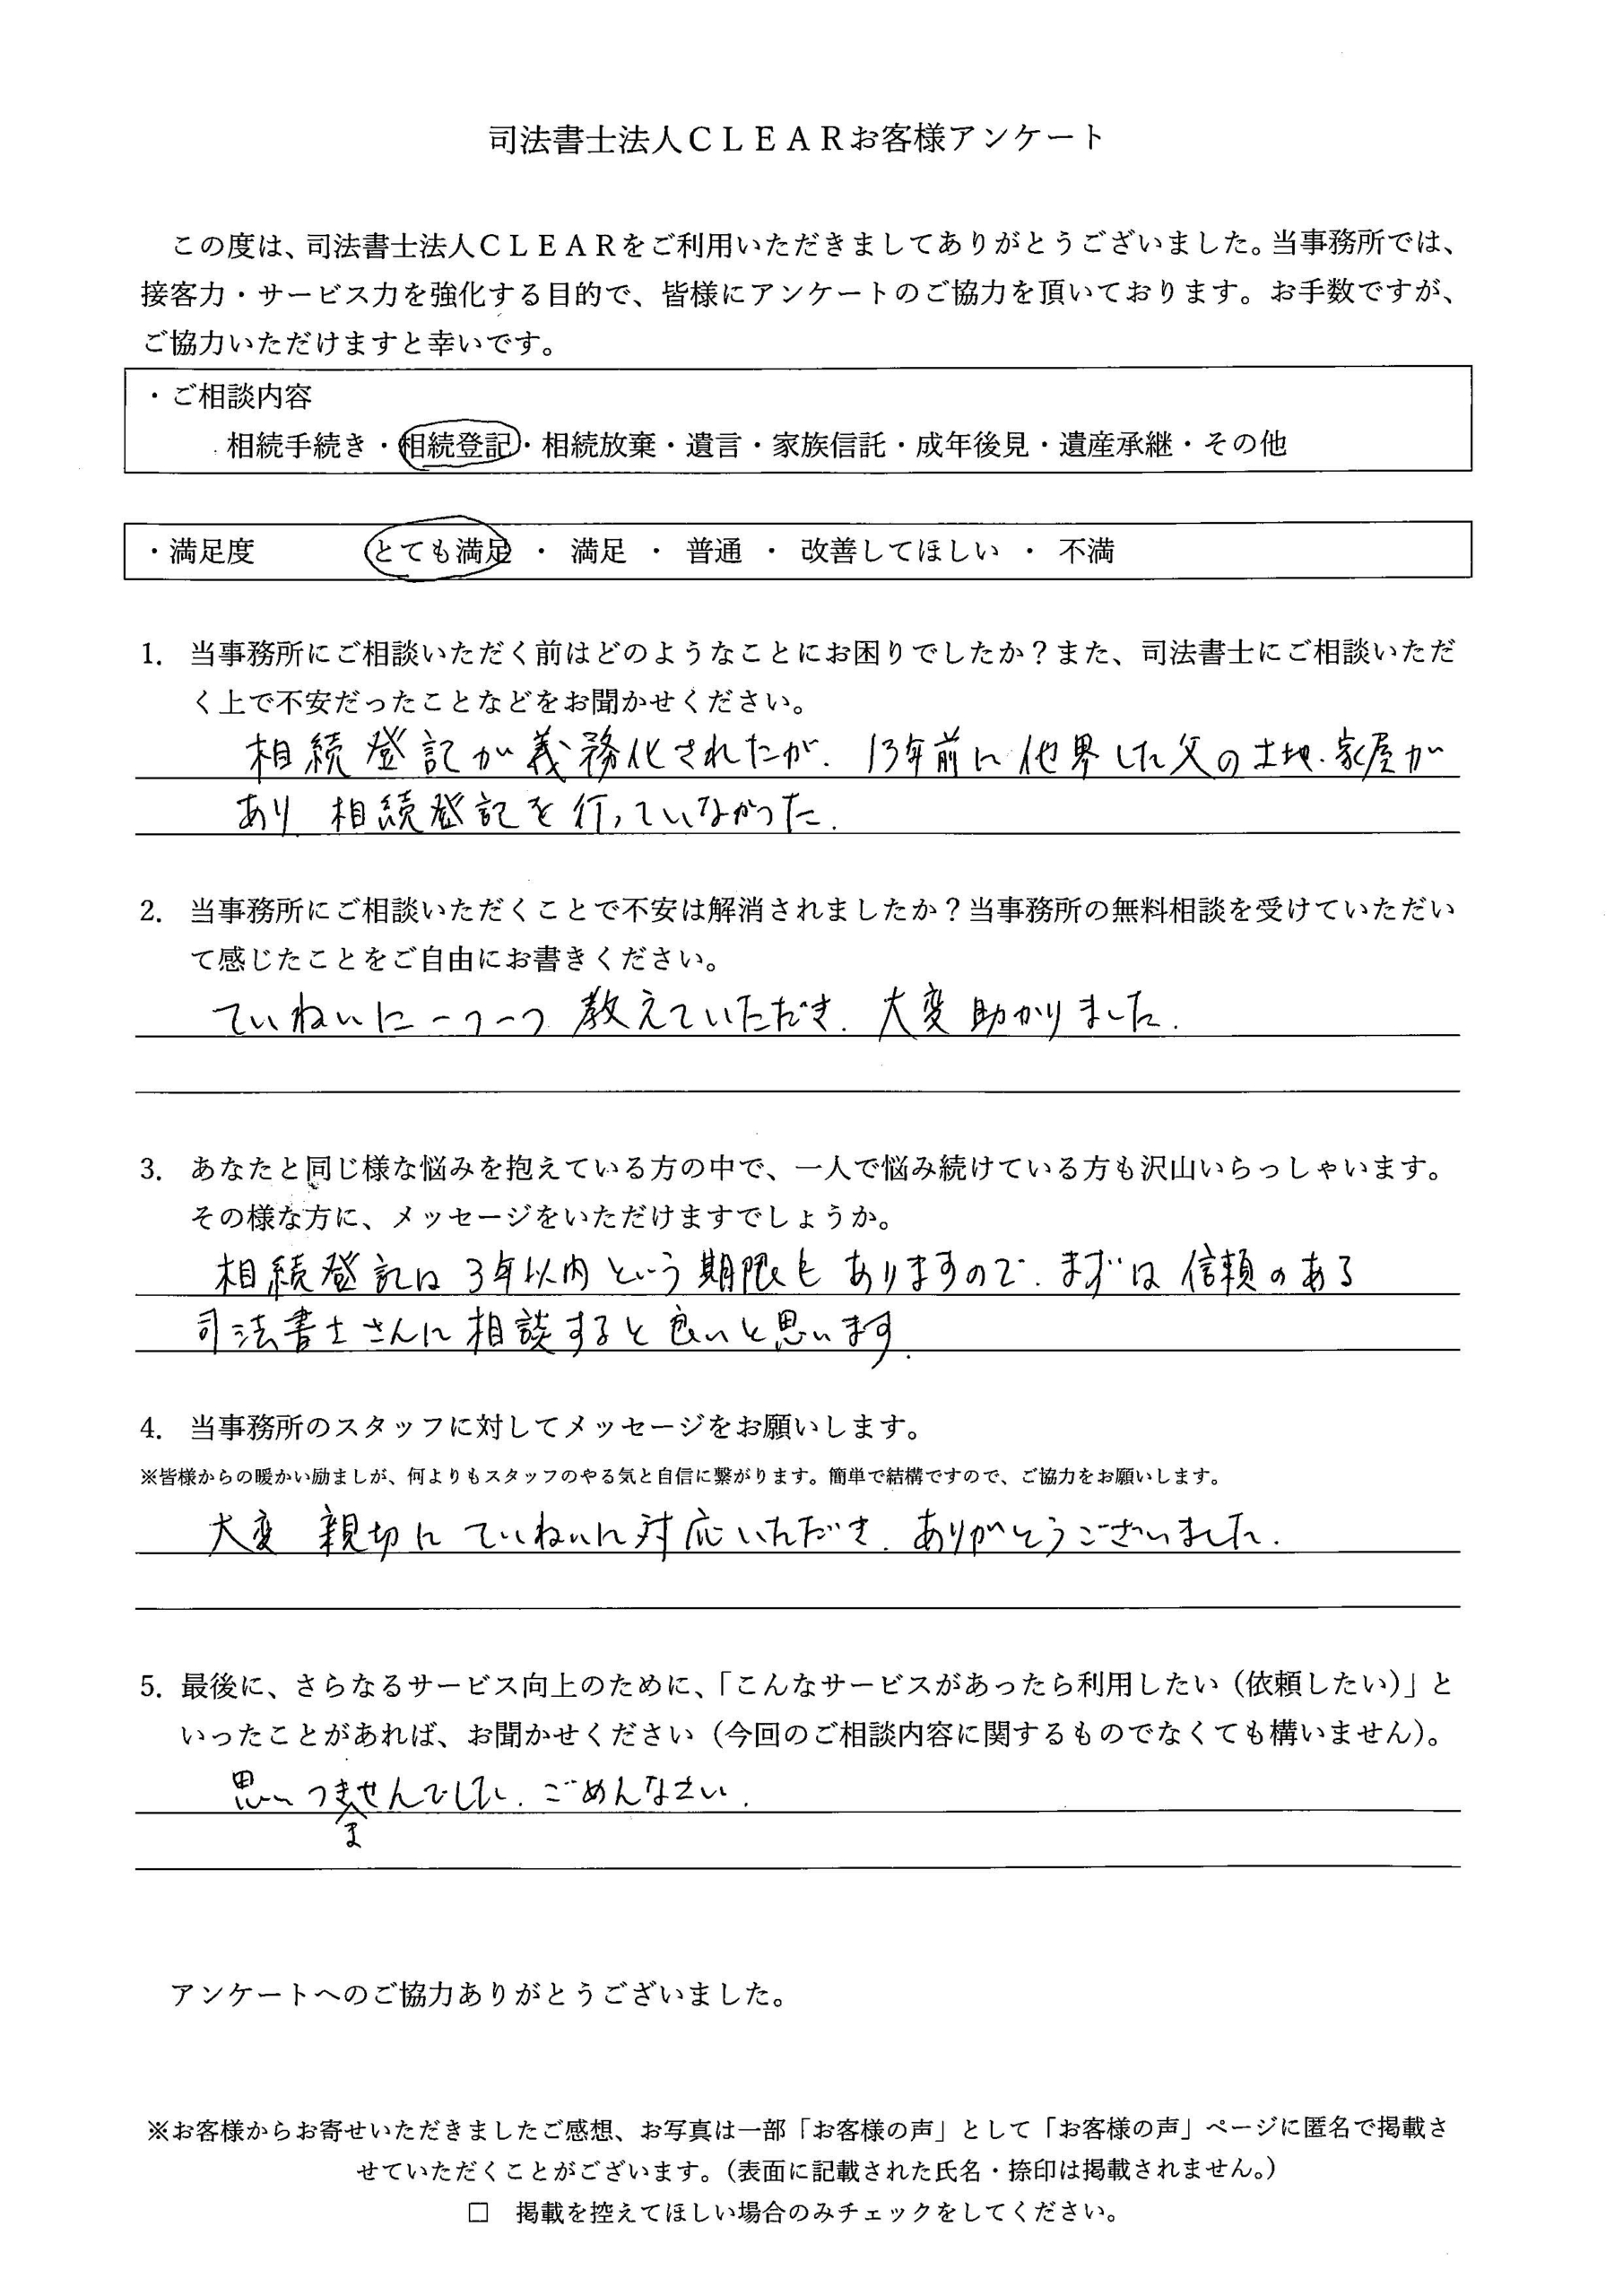 司法書士法人ＣＬＥＡＲお客様アンケート
この度は、司法書士法人ＣＬＥＡＲをご利用いただきましてありがとうございました。当事務所では、
接客力・サービス力を強化する目的で、皆様にアンケートのご協力を頂いております。お手数ですが、
ご協力いただけますと幸いです。
・ご相談内容
相続手続き・相続登記・相続放棄・遺言・家族信託・成年後見・遺産承継・その他
・満足度 とても満足 ・ 満足 ・ 普通 ・ 改善してほしい ・ 不満
1. 当事務所にご相談いただく前はどのようなことにお困りでしたか？また、司法書士にご相談いただ
く上で不安だったことなどをお聞かせください。
相続登記が義務化されたが、13年前に他界した父の土地・家屋が
あり 相続登記を行っていなかった。
2. 当事務所にご相談いただくことで不安は解消されましたか？当事務所の無料相談を受けていただい
て感じたことをご自由にお書きください。
ていねいに一つ一つ 教えていただき、大変助かりました。
3. あなたと同じ様な悩みを抱えている方の中で、一人で悩み続けている方も沢山いらっしゃいます。
その様な方に、メッセージをいただけますでしょうか。
相続登記は3年以内という期限もありますので、まずは信頼のある
司法書士さんに相談すると良いと思います。
4. 当事務所のスタッフに対してメッセージをお願いします。
※皆様からの暖かい励ましが、何よりもスタッフのやる気と自信に繋がります。簡単で結構ですので、ご協力をお願いします。
大変 親切に ていねいに対応いただき、ありがとうございました。
5. 最後に、さらなるサービス向上のために、「こんなサービスがあったら利用したい（依頼したい）」と
いったことがあれば、お聞かせください（今回のご相談内容に関するものでなくても構いません）。
思いつきませんでした。ごめんなさい。
アンケートへのご協力ありがとうございました。
※お客様からお寄せいただきましたご感想、お写真は一部「お客様の声」として「お客様の声」ページに匿名で掲載さ
せていただくことがございます。（表面に記載された氏名・捺印は掲載されません。）
□ 掲載を控えてほしい場合のみチェックをしてください。